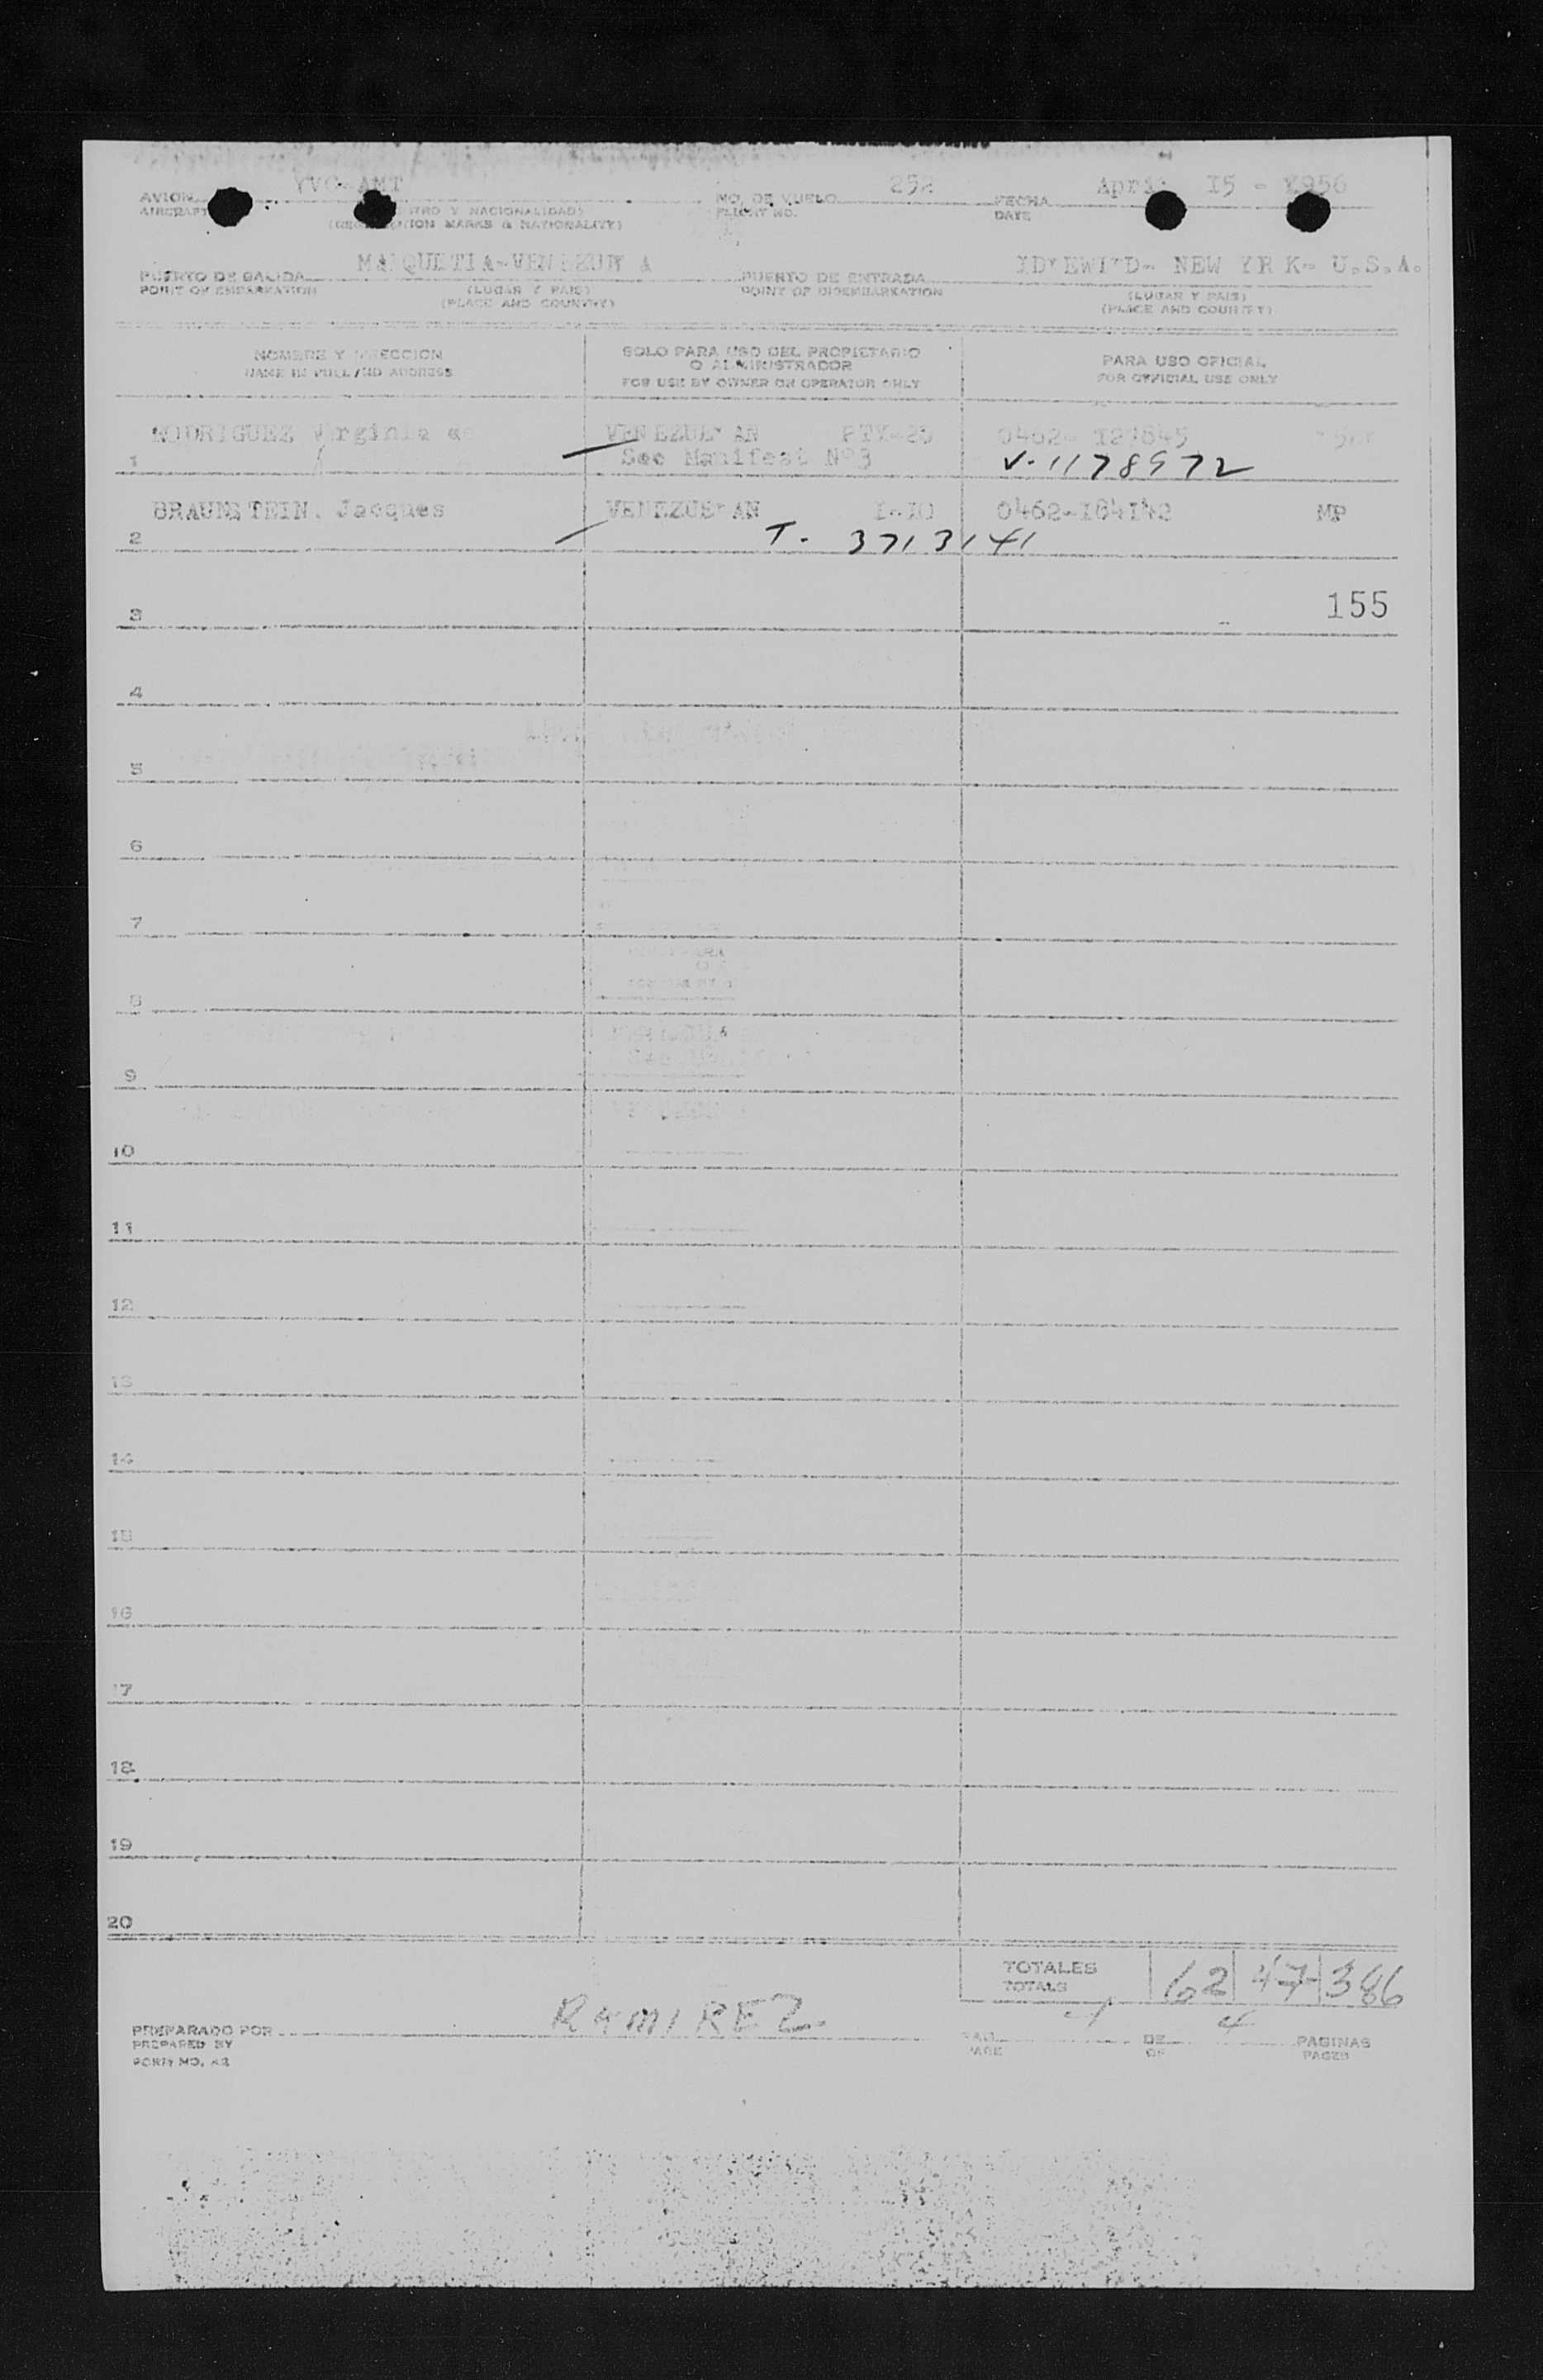 YVC-AMT 252 April 15 - 1956
AVION NO. DE VUELO FECHA
AIRCRAFT FLIGHT NO. DATE
(REGISTRATION MARKS & NATIONALITY)
PUERTO DE SALIDA PUERTO DE ENTRADA NEW Y RK- U.S.A.
POINT OF EMBARKATION (LUGAR Y PAIS) POINT OF DISEMBARKATION (LUGAR Y PAIS)
(PLACE AND COUNTRY) (PLACE AND COUNTRY)
NOMBRE Y DIRECCION SOLO PARA USO DEL PROPIETARIO PARA USO OFICIAL
O ADMINISTRADOR
NAME IN FULL AND ADDRESS FOR USE BY OWNER OR OPERATOR ONLY FOR OFFICIAL USE ONLY
RODRIGUEZ Virginia de
See Manifest Nº3
1 V-1178972
BRAUNSTEIN, Jacques I-10 0462-164142 MP
2 T. 3713141
3 155
4
5
6
7
8
9
10
11
12
13
14
15
16
17
18
19
20
TOTALES 62 47 386
TOTALS
PREPARADO POR RAMIREZ PAG. 4 DE 4 PAGINAS
PREPARED BY PAGE OF PAGES